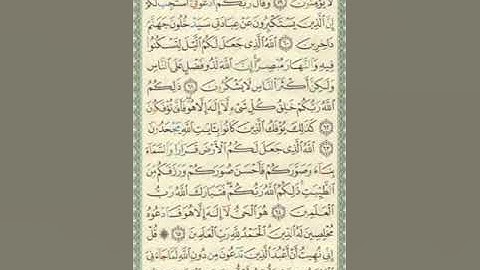 لَا يُؤْمِنُونَ ﴿٥٩﴾ وَقَالَ رَبُّكُمُ ادْعُونِي أَسْتَجِبْ لَكُمْ
إِنَّ الَّذِينَ يَسْتَكْبِرُونَ عَنْ عِبَادَتِي سَيَدْخُلُونَ جَهَنَّمَ
دَاخِرِينَ ﴿٦٠﴾ اللَّهُ الَّذِي جَعَلَ لَكُمُ اللَّيْلَ لِتَسْكُنُوا
فِيهِ وَالنَّهَارَ مُبْصِرًا إِنَّ اللَّهَ لَذُو فَضْلٍ عَلَى النَّاسِ
وَلَكِنَّ أَكْثَرَ النَّاسِ لَا يَشْكُرُونَ ﴿٦١﴾ ذَلِكُمُ
اللَّهُ رَبُّكُمْ خَالِقُ كُلِّ شَيْءٍ لَا إِلَهَ إِلَّا هُوَ فَأَنَّى تُؤْفَكُونَ
﴿٦٢﴾ كَذَلِكَ يُؤْفَكُ الَّذِينَ كَانُوا بِآيَاتِ اللَّهِ يَجْحَدُونَ
﴿٦٣﴾ اللَّهُ الَّذِي جَعَلَ لَكُمُ الْأَرْضَ قَرَارًا وَالسَّمَاءَ
بِنَاءً وَصَوَّرَكُمْ فَأَحْسَنَ صُوَرَكُمْ وَرَزَقَكُمْ مِنَ
الطَّيِّبَاتِ ذَلِكُمُ اللَّهُ رَبُّكُمْ فَتَبَارَكَ اللَّهُ رَبُّ
الْعَالَمِينَ ﴿٦٤﴾ هُوَ الْحَيُّ لَا إِلَهَ إِلَّا هُوَ فَادْعُوهُ
مُخْلِصِينَ لَهُ الدِّينَ الْحَمْدُ لِلَّهِ رَبِّ الْعَالَمِينَ ﴿٦٥﴾ ۞ قُلْ
إِنِّي نُهِيتُ أَنْ أَعْبُدَ الَّذِينَ تَدْعُونَ مِنْ دُونِ اللَّهِ لَمَّا جَاءَنِيَ